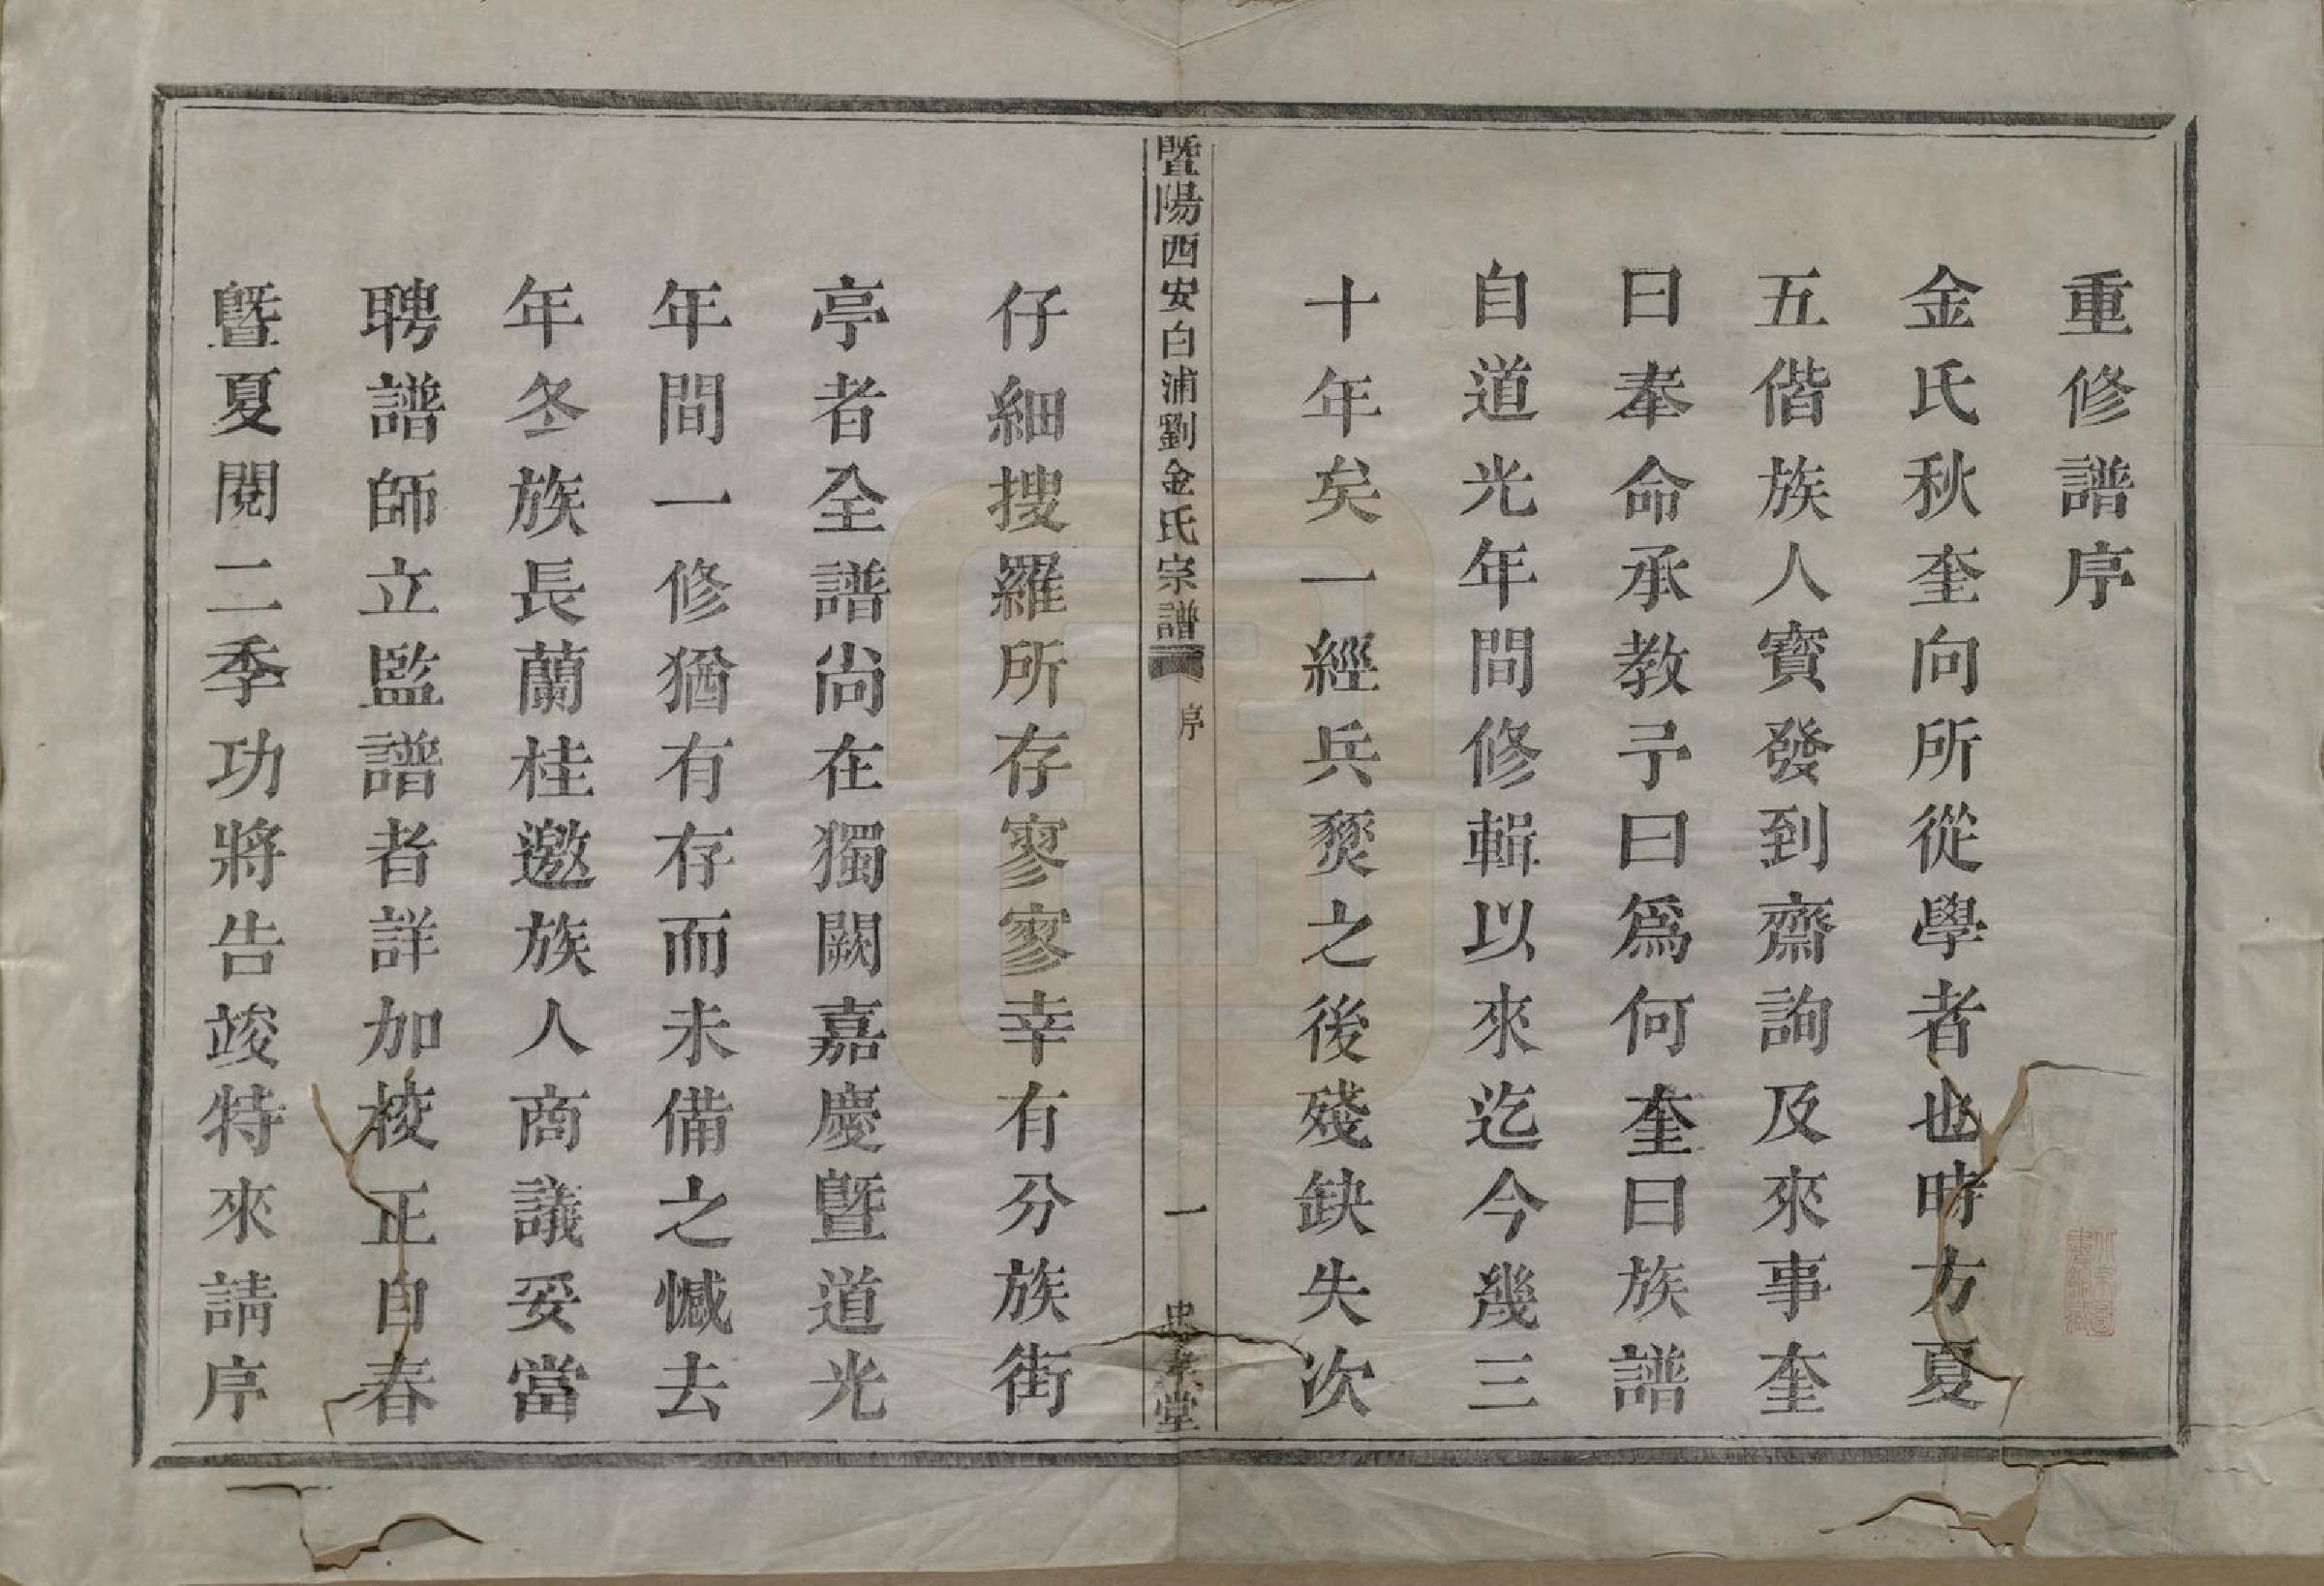 重修譜序
金氏秋奎向所從學者也時方夏
五偕族人寶發到齋詢及來事奎
曰奉命承教予曰爲何奎曰族譜
自道光年間修輯以來迄今幾三
十年矣一經兵燹之後殘缺失次
暨陽西安白浦劉金氏宗譜
序
一
忠孝堂
仔細搜羅所存寥寥幸有分族街
亭者全譜尚在獨闕嘉慶暨道光
年間一修猶有存而未備之憾去
年冬族長蘭桂邀族人商議妥當
聘譜師立監譜者詳加校正自春
暨夏閱二季功將告竣特來請序